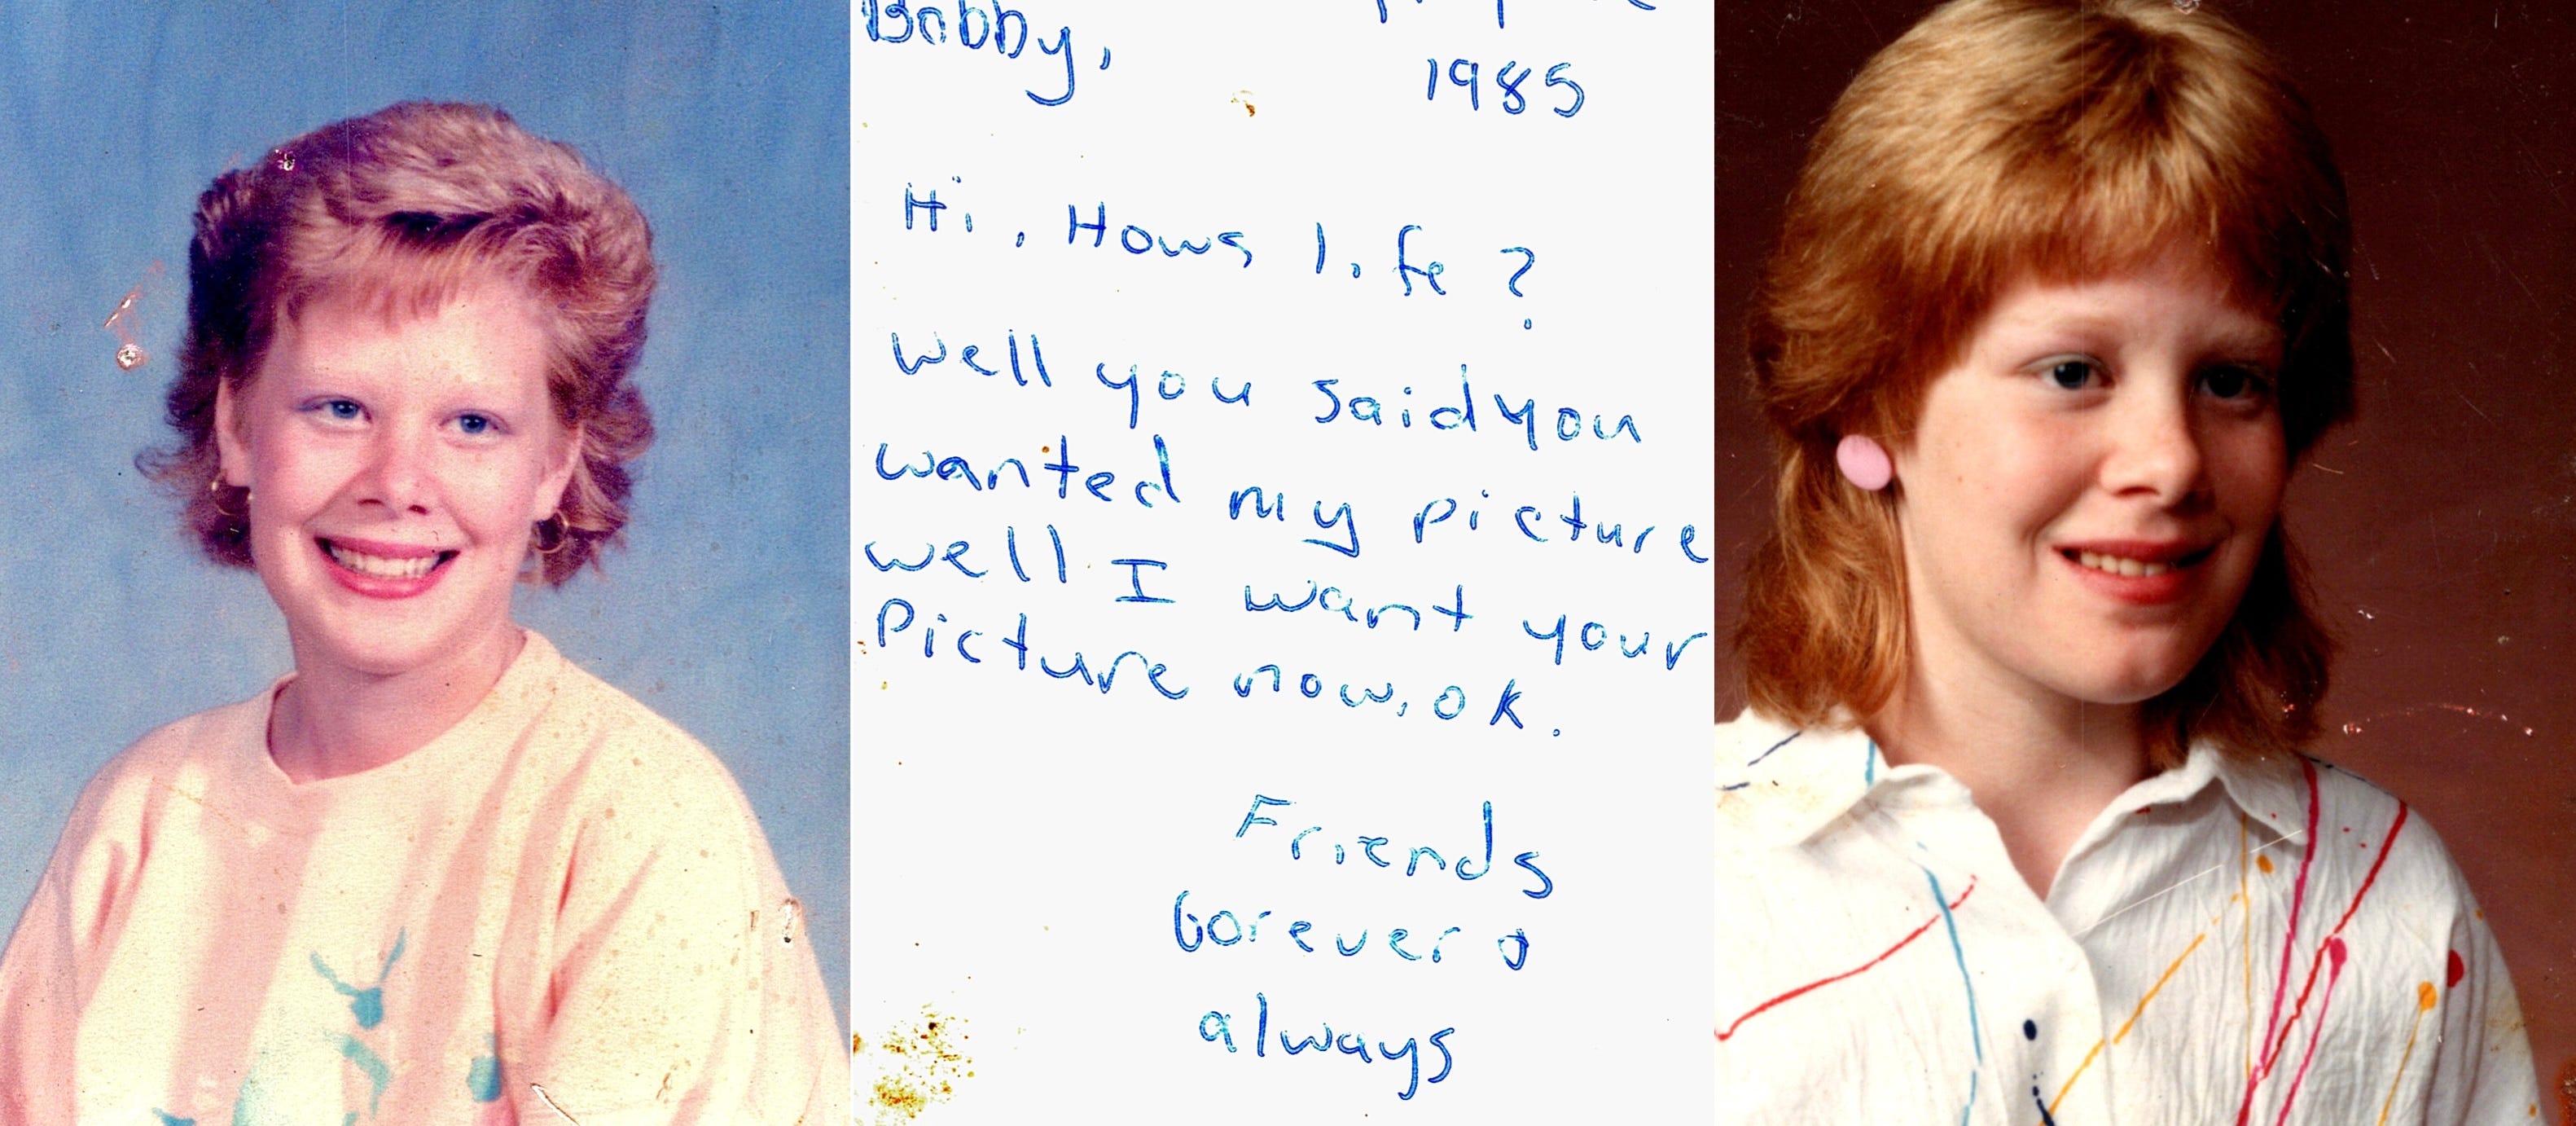 Bobby,
1985
Hi, Hows life?
Well you said you
wanted my picture
well I want your
Picture now, ok.
Friends
forever &
always